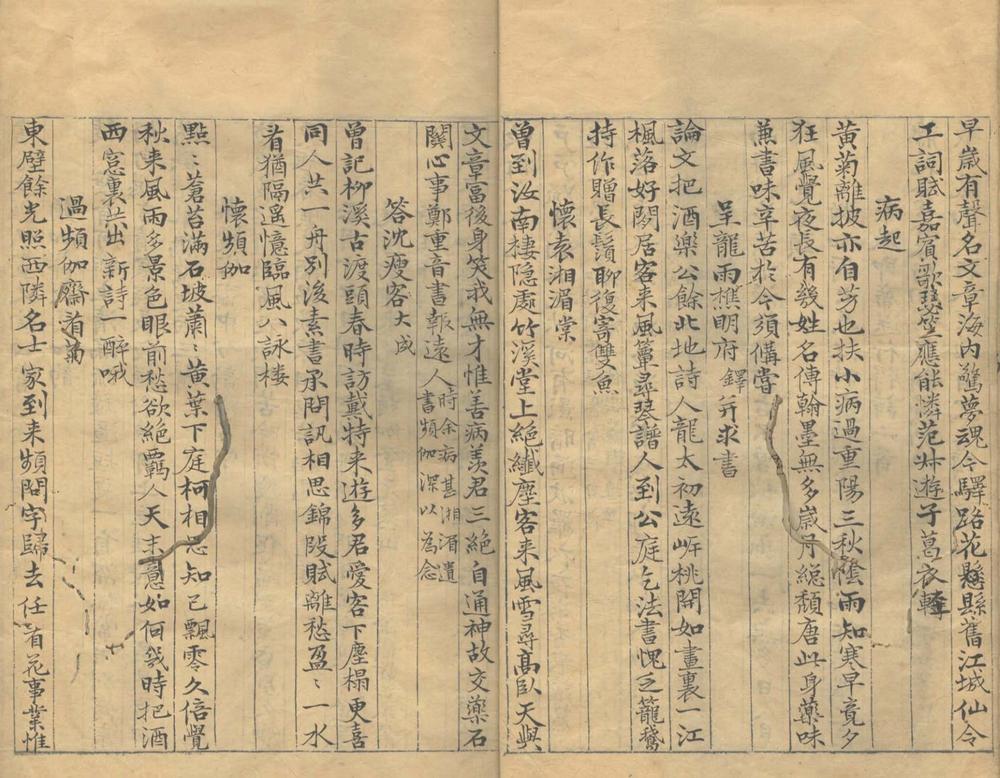 早歲有聲名文章海內驚夢魂令驛路花縣縣舊江城仙令
工詞賦嘉賓歌瑟笙應能憐范叔遊子葛衣輕
病起
黃菊離披亦自芳也扶小病過重陽三秋陰雨知寒早竟夕
狂風覺夜長有幾姓名傳翰墨無多歲月總頹唐此身藥味
兼書味辛苦於今須備嘗
呈龍雨樵明府鐸并求書
論文把酒樂公餘此地詩人龍太初遠岍桃開如畫裏一江
楓落好閒居客來風簟尋琴譜人到公庭乞法書愧乏籠鵝
持作贈長鬚聊復寄雙魚
懷袁湘湄棠
曾到汝南棲隐處竹溪堂上絕纖塵客來風雪尋高臥天與
文章富後身笑我無才惟善病羨君三絕自通神故交藥石
關心事鄭重音書報遠人時余病甚湘湄遺書頻伽深以為念
答沈瘦客大成
曾記柳溪古渡頭春時訪戴特来遊多君愛客下塵榻更喜
同人共一舟別後素書承問訊相思錦段賦離愁盈〻一水
看猶隔遥憶臨風八詠楼
懷頻伽
點〻蒼苔滿石坡蕭〻黃葉下庭柯相思知己飄零久倍覺
秋来風雨多景色眼前愁欲絕羈人天末意如何幾時把酒
西窓裏共出新詩一醉哦
過頻伽齋看菊
東壁餘光照西隣名士家到来頻問字歸去任看花事業惟